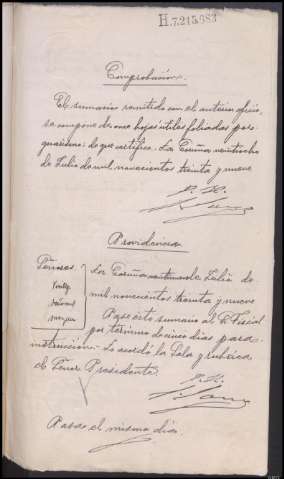 H.7.245.683
Comprobación.
El sumario remitido con el anterior oficio,
se compone de once hojas útiles foliadas por
guarismo: de que certifico. La Coruña veintiocho
de Julio de mil novecientos treinta y nueve
Providencia
Señores
La Coruña veintiocho de Julio de
mil novecientos treinta y nueve
Pase este sumario al S. Fiscal
por término de cinco días para
instrucción.- Lo acordó la Sala y rubrica
el Señor Presidente
Pasa el mismo día